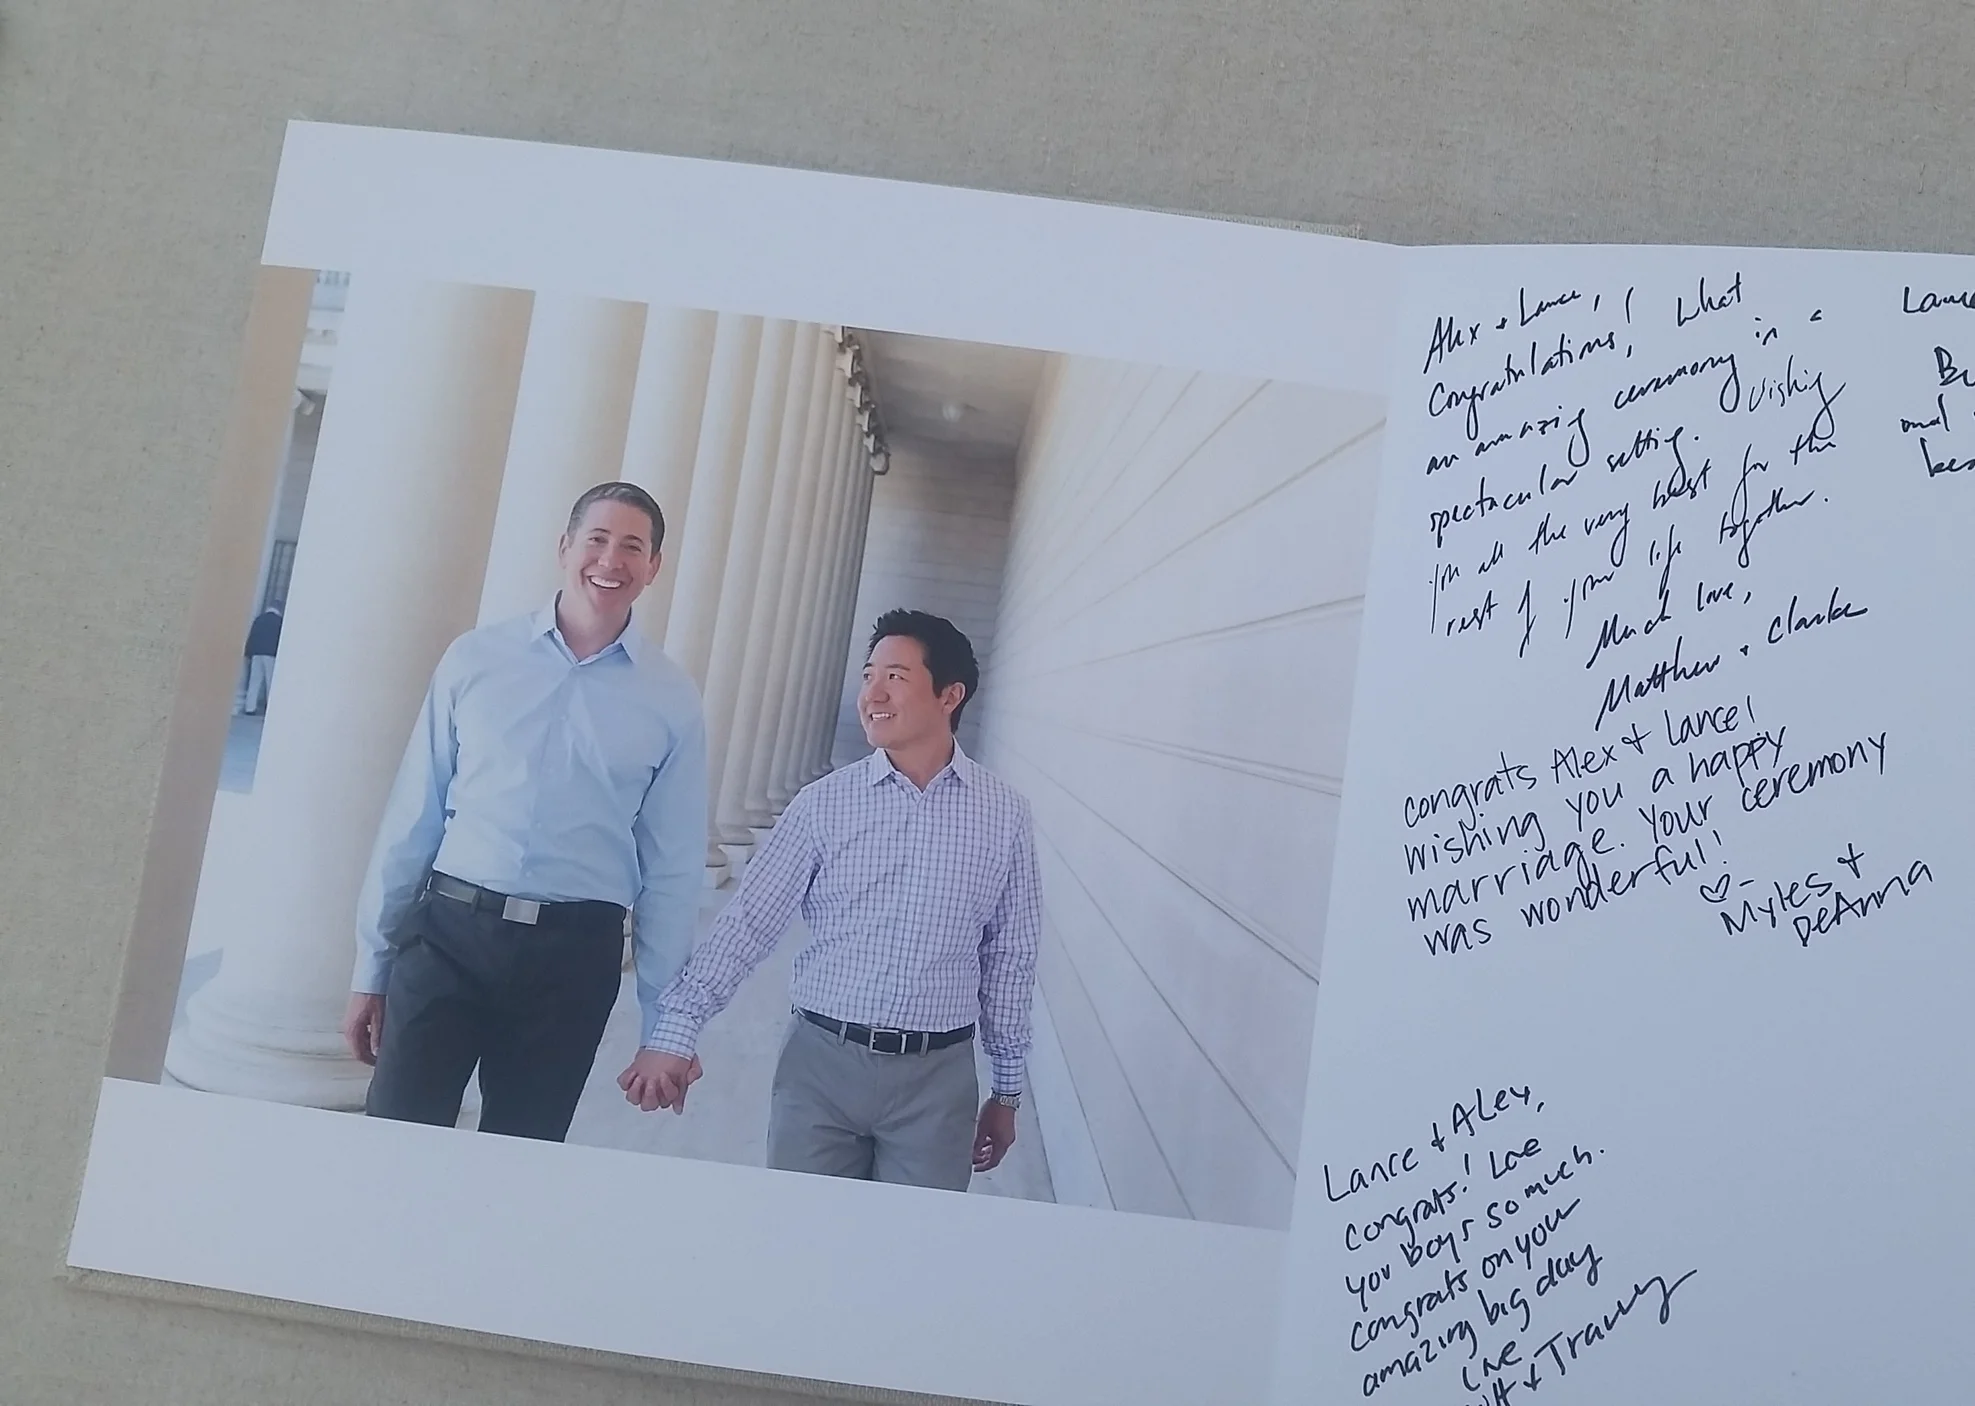 Alex + Lance,
Congratulations! What
an amazing ceremony in a
spectacular setting. Wishing
you all the very best for the
rest of your life together.
Much love,
Matthew + Clarke
congrats Alex + Lance!
wishing you a happy
marriage. Your ceremony
was wonderful!
♡- Myles +
DeAnna
Lance + Alex,
Congrats! Love
you boys so much.
Congrats on your
amazing big day
Love
+ Tranny
Lance
and